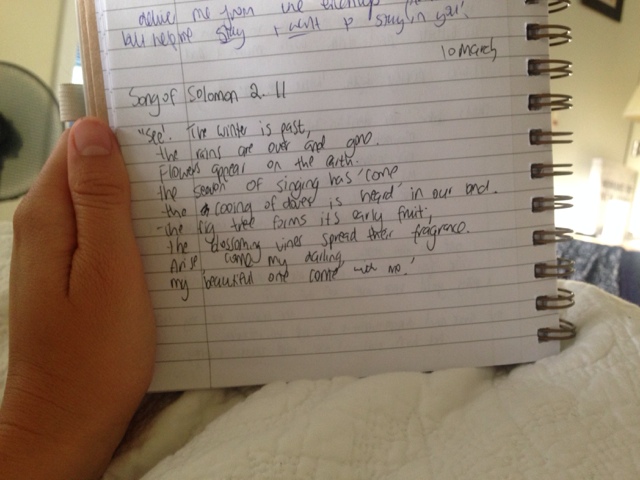 deliver me from the
but help me stay & want to stay in you!
10 March
Song of Solomon 2. 11
"See. The winter is past,
the rains are over and gone.
Flowers appear on the earth.
the season of singing has come
the cooing of doves is heard in our land.
the fig tree forms its early fruit,
the blossoming vines spread their fragrance.
Arise come my darling,
my beautiful one come with me."